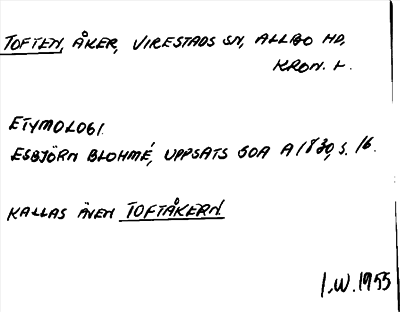 TOFTEN, ÅKER, VIRESTADS SN, ALLBO HD,
KRON. L.
ETYMOLOGI.
ESBJÖRN BLOHMÉ, UPPSATS GOA A 1830, S. 16.
KALLAS ÄVEN TOFTÅKERN
I.W. 1955